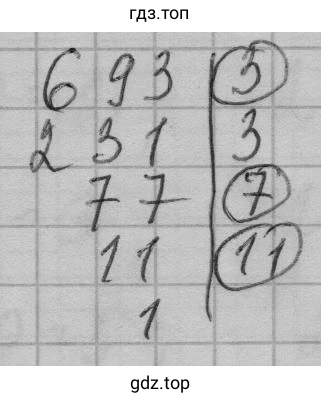 гдз.топ
693 | 3
231 | 3
77 | 7
11 | 11
1 |
gdz.top